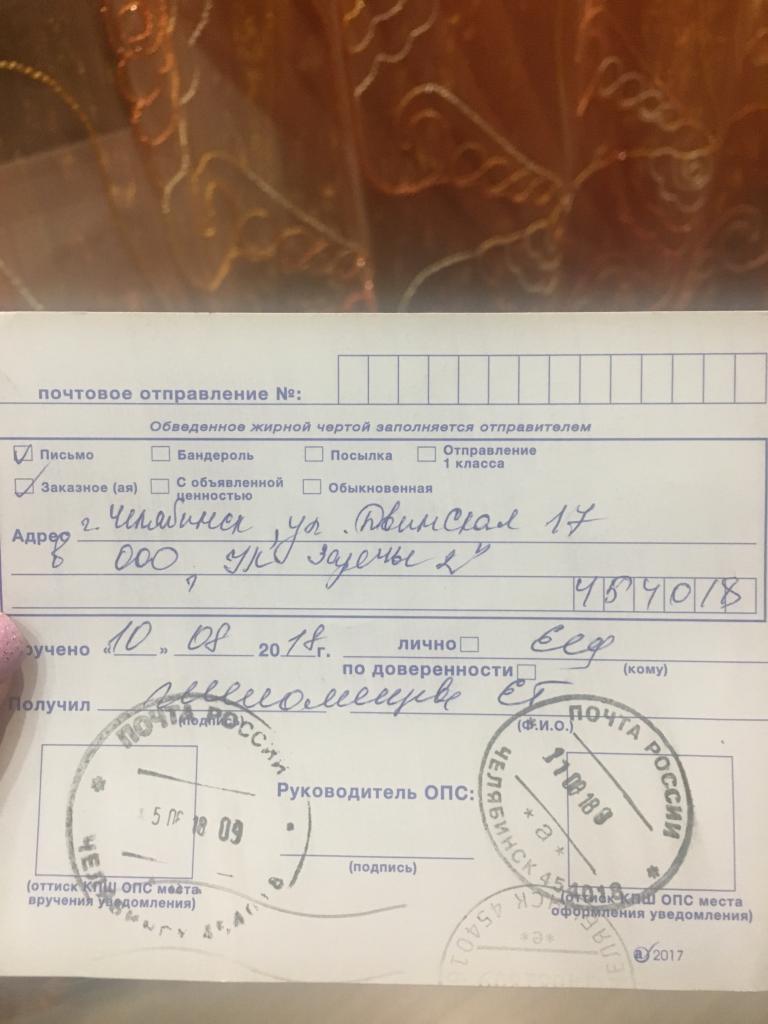 почтовое отправление №:
Обведенное жирной чертой заполняется отправителем
Письмо Бандероль Посылка Отправление 1 класса
Заказное (ая) С объявленной ценностью Обыкновенная
Адрес г. Челябинск, ул. Двинская 17
в ООО УК Заречье 2"
454018
ручено «10» 08 2018г. лично
по доверенности (кому)
Получил
(подпись) (Ф.И.О.)
ПОЧТА РОССИИ
ПОЧТА РОССИИ
ЧЕЛЯБИНСК 454018
17 08 18 9
*а*
18 09
Руководитель ОПС:
(подпись)
(оттиск КПШ ОПС места вручения уведомления)
(оттиск КПШ ОПС места оформления уведомления)
*е*
2017